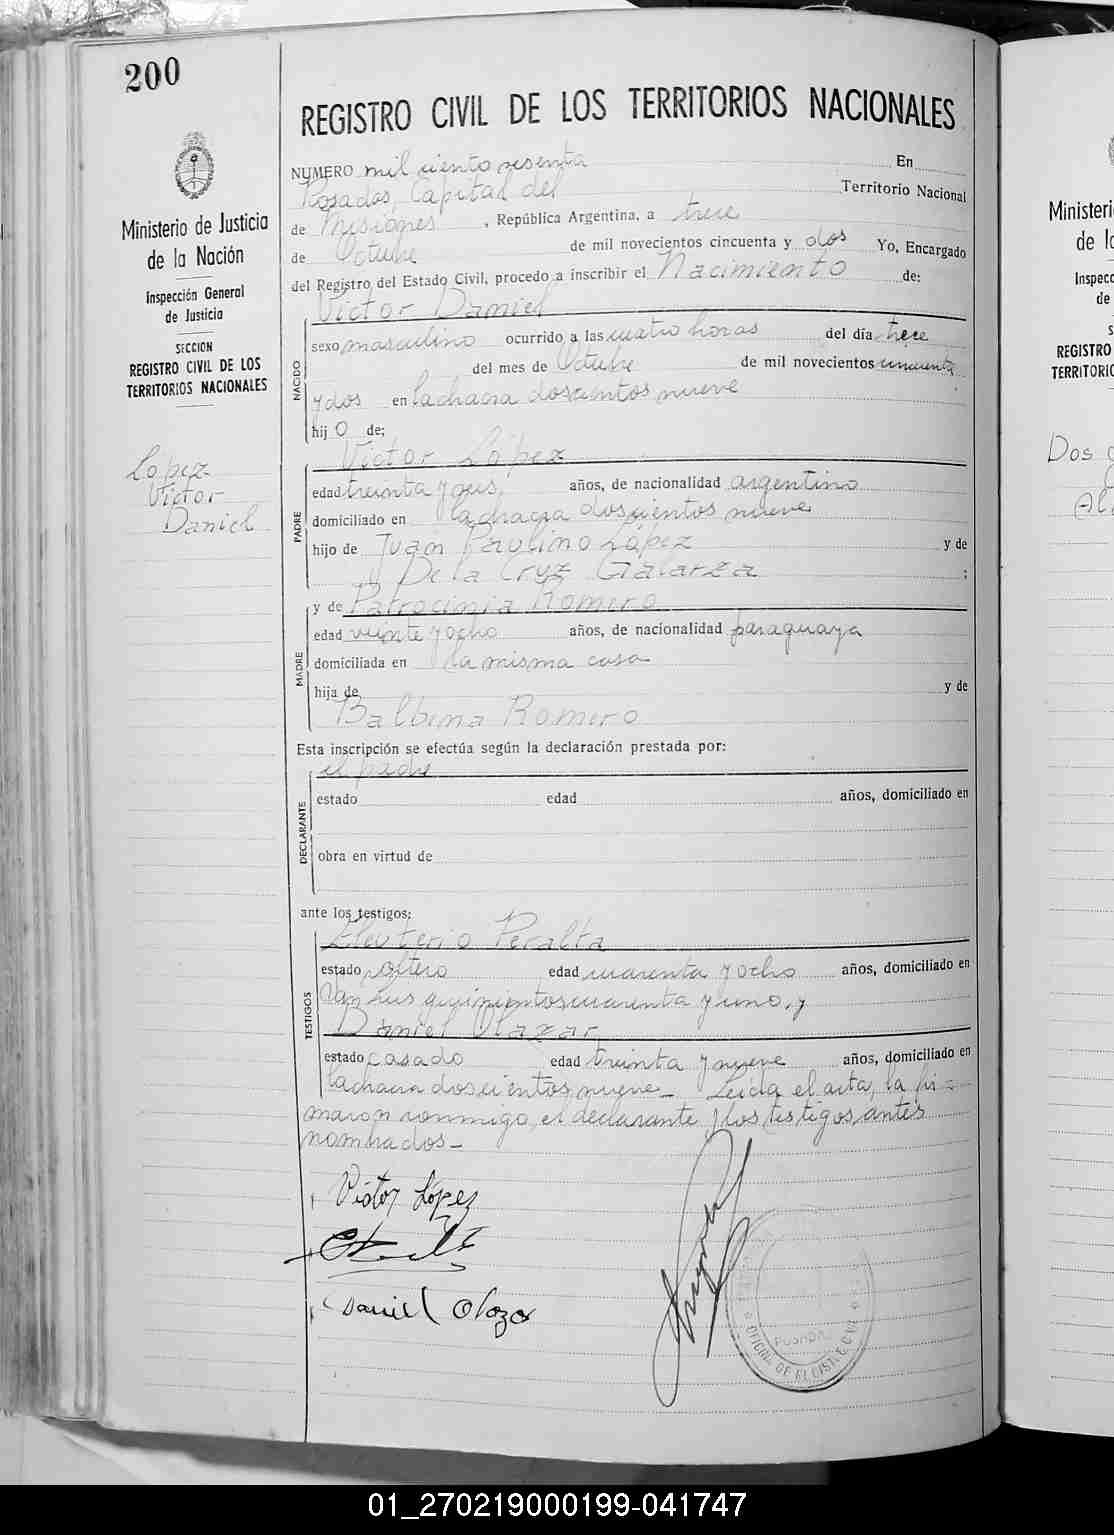 200
REGISTRO CIVIL DE LOS TERRITORIOS NACIONALES
Ministerio de Justicia
de la Nación
Inspección General
de Justicia
SECCION
REGISTRO CIVIL DE LOS
TERRITORIOS NACIONALES
López
Víctor
Daniel
NUMERO mil ciento sesenta En
Posadas, Capital del Territorio Nacional
de Misiones, República Argentina, a trece
de Octubre de mil novecientos cincuenta y dos Yo, Encargado
del Registro del Estado Civil, procedo a inscribir el Nacimiento de:
Víctor Daniel
NACIDO
sexo masculino ocurrido a las cuatro horas del día trece
del mes de Octubre de mil novecientos cincuenta
y dos en la chacra doscientos nueve
hij o de:
Víctor López
PADRE
edad treinta y seis, años, de nacionalidad argentino
domiciliado en la chacra doscientos nueve
hijo de Juan Paulino López y de
De la Cruz Galarza ;
y de Patrocinia Romero
MADRE
edad veinte y ocho años, de nacionalidad paraguaya
domiciliada en la misma casa
hija de y de
Balbina Romero
Esta inscripción se efectúa según la declaración prestada por:
el padre
DECLARANTE
estado edad años, domiciliado en
obra en virtud de
ante los testigos:
Eleuterio Peralta
TESTIGOS
estado soltero edad cuarenta y ocho años, domiciliado en
San Luis quinientos cuarenta y uno, y
Daniel Olazar
estado casado edad treinta y nueve años, domiciliado en
la chacra doscientos nueve_ Leída el acta, la fir=
maron conmigo, el declarante y los testigos antes
nombrados_
Víctor López
Daniel Olazar
POSADAS
Ministeri
de la
Inspec
de
REGISTRO
TERRITORIO
Dos
01_270219000199-041747